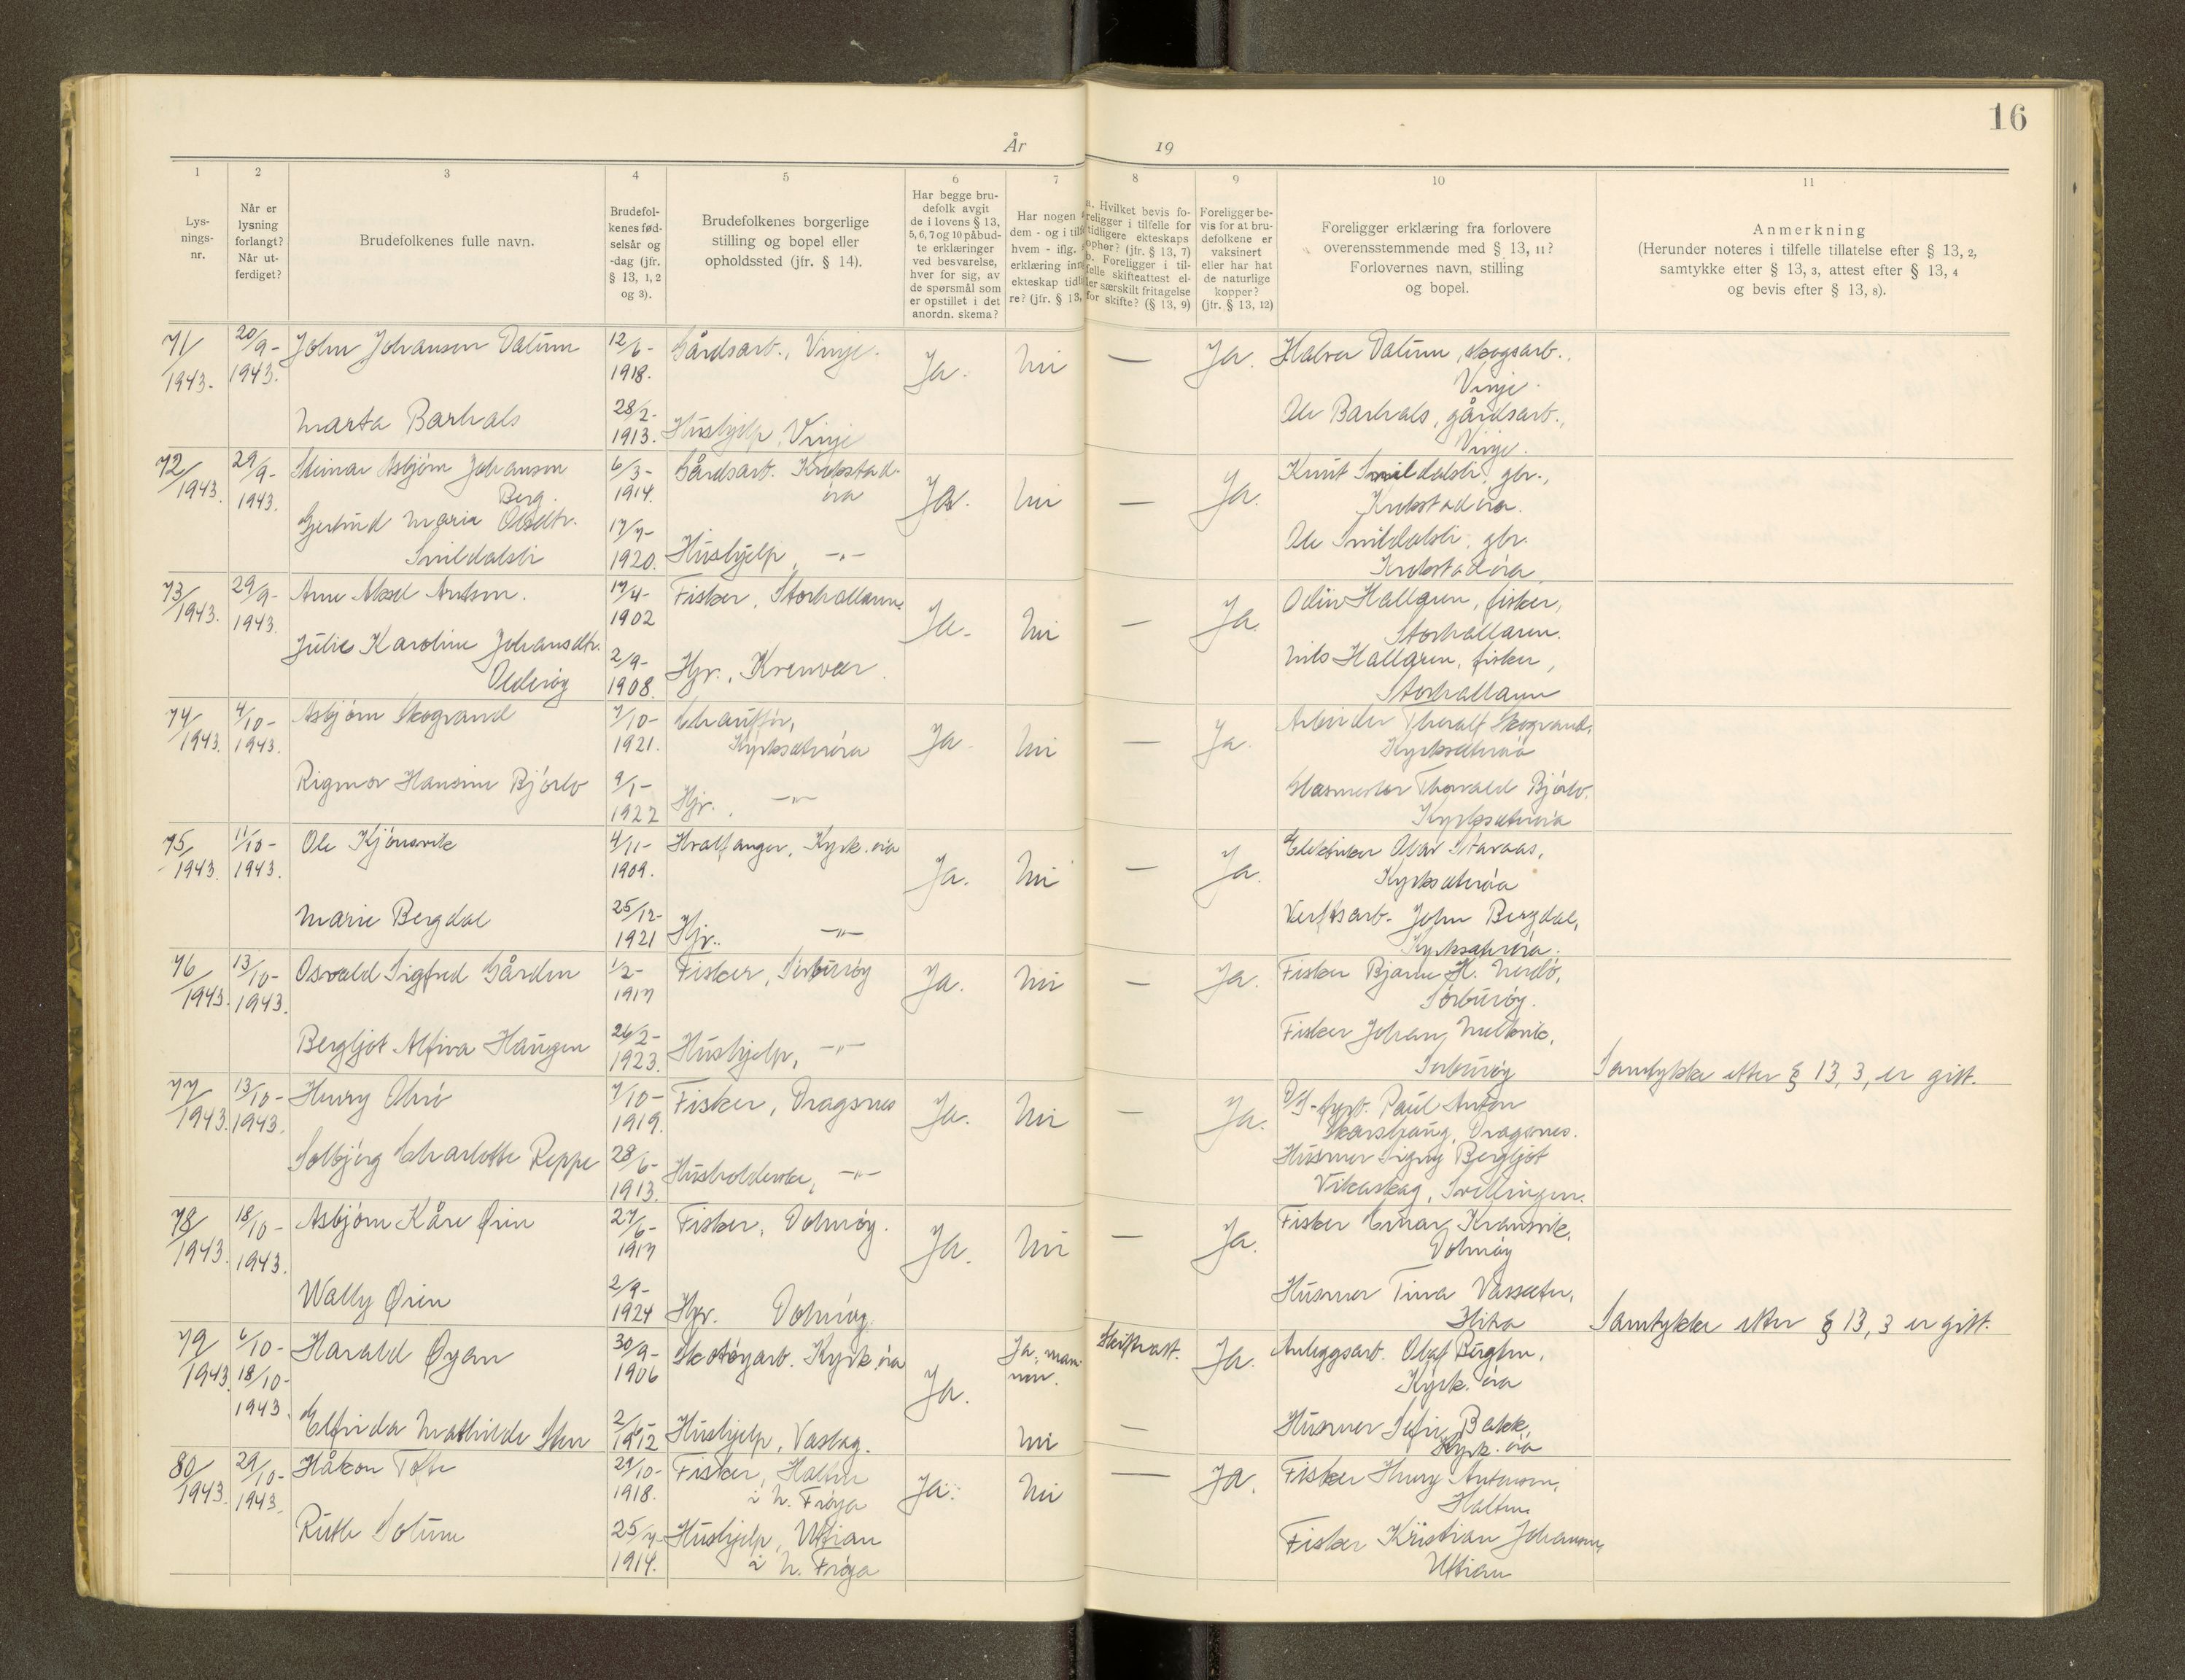 16
År 19
1 2 3 4 5 6 7 8 9 10 11
Lys-
nings-
nr.
Når er
lysning
forlangt?
Når ut-
ferdiget?
Brudefolkenes fulle navn.
Brudefol-
kenes fød-
selsår og
-dag (jfr.
§ 13, 1, 2
og 3).
Brudefolkenes borgerlige
stilling og bopel eller
opholdssted (jfr. § 14).
Har begge bru-
defolk avgit
de i lovens § 13,
5, 6, 7 og 10 påbud-
te erklæringer
ved besvarelse,
hver for sig, av
de spørsmål som
er opstillet i det
anordn. skema?
Har nogen a
dem - og i tilf
hvem - iflg.
erklæring inn
ekteskap tidl
re? (jfr. § 13,
a. Hvilket bevis fo-
religger i tilfelle for
tidligere ekteskaps
ophør? (jfr. § 13, 7)
b. Foreligger i til-
felle skifteattest el-
ler særskilt fritagelse
for skifte? (§ 13, 9)
Foreligger be-
vis for at bru-
defolkene er
vaksinert
eller har hat
de naturlige
kopper?
(jfr. § 13, 12)
Foreligger erklæring fra forlovere
overensstemmende med § 13, 11?
Forlovernes navn, stilling
og bopel.
Anmerkning
(Herunder noteres i tilfelle tillatelse efter § 13, 2,
samtykke efter § 13, 3, attest efter § 13, 4
og bevis efter § 13, 8).
71/ 20/9- John Johansen Dalum 12/6- Gårdsarb., Vinje. Ja. Nei — Ja. Halvor Dalum, skogsarb.,
1943. 1943. 1918. Vinje.
Marta Barhals 28/2- Ole Barhals, gårdsarb.,
1913. Hushjelp, Vinje Vinje.
72/ 29/9- Steinar Asbjørn Johansen 6/3- Gårdsarb. Krokstad- Ja. Nei — Ja. Knut Snildalsli, gbr.,
1943. 1943. Berg. 1914. øra Krokstadøra.
Gjertrud Maria Olsdtr. 17/7- Ole Snildalsli, gbr.
Snildalsli 1920. Hushjelp, -"- Krokstadøra,
73/ 29/9- Arne Aksel Antsen. 17/4- Fisker, Storhallaren. Ja. Nei — Ja. Odin Hallaren, fisker,
1943. 1943. 1902 Storhallaren.
Julie Karoline Johansdtr. 2/9- Nils Hallaren, fisker,
Olderøy 1908. Hjr., Kvenvær. Storhallaren
74/ 4/10- Asbjørn Skogrand 7/10- Chauffør, Ja. Nei — Ja. Arbeider Thoralf Skogrand,
1943. 1943. 1921. Kyrksæterøra Kyrksæterøra
Rigmor Hansine Bjørlo 9/1- Glasmester Thorvald Bjørlo.
1922 Hjr. -"- Kyrksæterøra
75/ 11/10- Ole Kjønsvik 4/11- Hvalfanger, Kyrk.øra Ja. Nei — Ja. Elektriker Olav Stavaas,
1943. 1943. 1909. Kyrksæterøra
Marie Bergdal 25/12- Verftsarb. John Bergdal,
1921 Hjr. -"- Kyrksæterøra.
76/ 13/10- Osvald Sigfred Gården 1/2- Fisker, Sørburøy Ja. Nei — Ja. Fisker Bjarne H. Nerdø,
1943. 1943. 1917 Sørburøy.
Bergljot Alfiva Haugen 26/2- Fisker Johan
1923. Hushjelp, -"- Sørburøy Samtykke etter § 13, 3, er gitt.
77/ 13/10- Henry 7/10- Fisker, Dragsnes Ja. Nei — Ja. Paul Anton
1943. 1943. 1919. Skarshaug, Dragsnes.
Solbjørg Charlotte Reppe 28/6- Husmor Signy Bergljot
1913. Husholderske, -"- Vikaskag, Svellingen.
78/ 18/10- Asbjørn Kåre Øien 27/6- Fisker, Dolmøy. Ja. Nei — Ja. Fisker Einar Kransvik,
1943. 1943. 1917 Dolmøy
Wally Øien 2/9- Husmor Tina Vassæter,
1924 Hjr. Dolmøy. Hitra Samtykke etter § 13, 3 er gitt.
79/ 6/10- Harald Øyen 30/9- Skotøyarb. Kyrk.øra Ja. Ja, man- Skifteatt. Ja. Anleggsarb. Olaf Bergten,
1943. 18/10- 1906 nen. Kyrk.øra
1943. Elfrida Mathilde Sten 2/6- Nei — Husmor Sefie Bakk,
1912 Hushjelp, Vaslag. Kyrk.øra
80/ 29/10- Håkon Tofte 29/10- Fisker, Halten Ja. Nei — Ja. Fisker Henry Antonsen,
1943. 1943. 1918. i N. Frøya Halten.
Ruth Solum 25/7- Hushjelp, Uttian Fisker Kristian Johansen,
1914. i N. Frøya Uttian